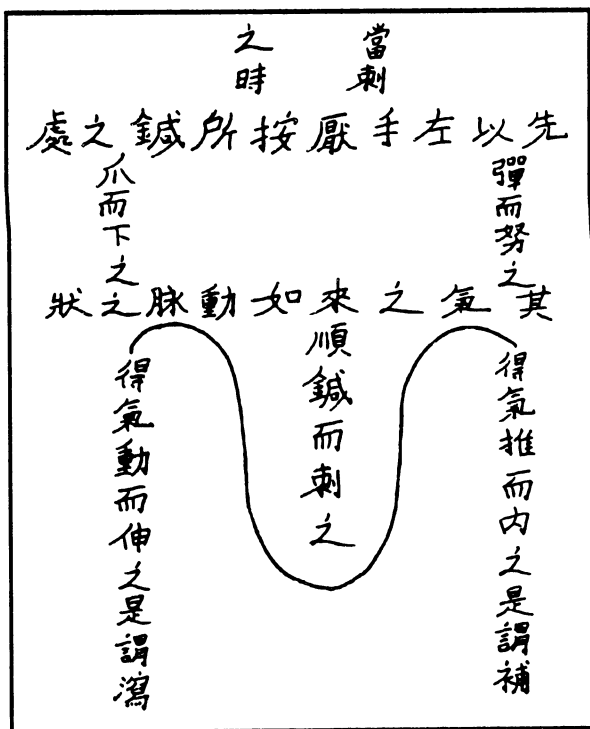 當刺
之時
先以左手厭按所鍼之處
彈而努之
爪而下之
其氣之來如動脉之狀
順鍼而刺之
得氣推而內之是謂補
得氣動而伸之是謂瀉